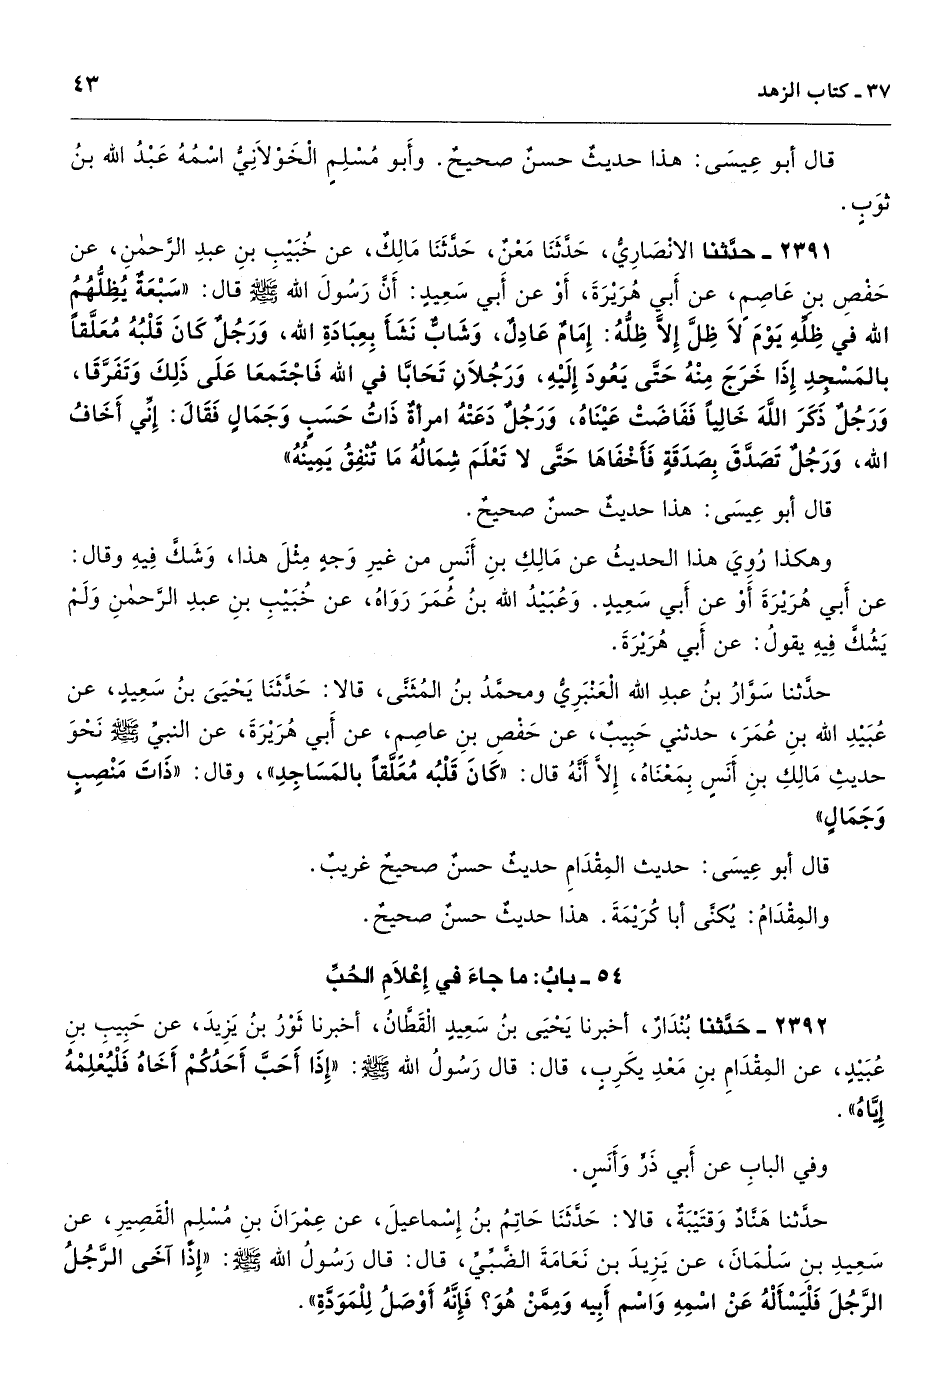 ٣٧ - كتاب الزهد
٤٣
قال أبو عِيسَى: هذا حديثٌ حسنٌ صحيحٌ. وأَبو مُسْلِمٍ الْخَوْلاَنِيُّ اسْمُهُ عَبْدُ الله بنُ
ثوَبٍ.
٢٣٩١ - حدَّثنا الانْصَارِيُّ، حَدَّثَنَا مَعْنٌ، حَدَّثَنَا مَالِكٌ، عن خُبَيْبِ بنِ عبدِ الرَّحمٰنِ، عن
حَفْصِ بنِ عَاصِمٍ، عن أَبي هُرَيْرَةَ، أَوْ عن أَبي سَعِيدٍ: أَنَّ رَسُولَ الله ﷺ قال: «سَبْعَةٌ يُظِلُّهُمُ
الله في ظِلِّهِ يَوْمَ لاَ ظِلَّ إِلاَّ ظِلُّهُ: إِمَامٌ عَادِلٌ، وَشَابٌّ نَشَأَ بِعِبَادَةِ الله، وَرَجُلٌ كَانَ قَلْبُهُ مُعَلَّقاً
بالمَسْجِدِ إِذَا خَرَجَ مِنْهُ حَتَّى يَعُودَ إِلَيْهِ، وَرَجُلاَنِ تَحَابَّا في الله فَاجْتَمعَا عَلَى ذَلِكَ وَتَفَرَّقَا،
وَرَجُلٌ ذَكَرَ اللَّهَ خَالِياً فَفَاضَتْ عَيْنَاهُ، وَرَجُلٌ دَعَتْهُ امرأةٌ ذَاتُ حَسَبٍ وَجَمَالٍ فَقَالَ: إِنِّي أَخَافُ
الله، وَرَجُلٌ تَصَدَّقَ بِصَدَقَةٍ فَأَخْفَاهَا حَتَّى لا تَعْلَمَ شِمَالُهُ مَا تُنْفِقُ يَمِينُهُ»
قال أبو عِيسَى: هذا حديثٌ حسنٌ صحيحٌ.
وهكذا رُوِيَ هذا الحديثُ عن مَالِكِ بنِ أَنَسٍ من غيرِ وَجهٍ مِثْلَ هذا، وَشَكَّ فِيهِ وقال:
عن أَبي هُرَيْرَةَ أَوْ عن أَبي سَعِيدٍ. وَعُبَيْدُ الله بنُ عُمَرَ رَوَاهُ، عن خُبَيْبِ بنِ عبدِ الرَّحمٰنِ وَلَمْ
يَشُكَّ فِيهِ يقولُ: عن أَبي هُرَيْرَةَ.
حدَّثنا سَوَّارُ بنُ عبدِ الله الْعَنْبَرِيُّ ومحمَّدُ بنُ المُثَنَّى، قالا: حَدَّثَنَا يَحْيَىَ بنُ سَعِيدٍ، عن
عُبَيْدِ الله بنِ عُمَرَ، حدثني حَبِيبٌ، عن حَفْصِ بنِ عاصِمٍ، عن أَبي هُرَيْرَةَ، عن النبيِّ ﷺ نَحْوَ
حديثِ مَالِكِ بنِ أَنَسٍ بِمَعْنَاهُ، إِلاَّ أَنَّهُ قال: «كَانَ قَلْبُه مُعَلَّقاً بالمَسَاجِدِ»، وقال: «ذَاتَ مَنْصِبٍ
وَجَمَالٍ»
قال أبو عِيسَى: حديث المِقْدَامِ حديثٌ حسنٌ صحيحٌ غريبٌ.
والمِقْدَامُ: يُكنَّى أبا كُرَيْمَةَ. هذا حديثٌ حسنٌ صحيحٌ.
٥٤ - بابُ: ما جاءَ في إعْلاَمِ الحُبِّ
٢٣٩٢ - حَدَّثنا بُنْدَارٌ، أخبرنا يَحْيَى بنُ سَعِيدٍ الْقَطَّانُ، أخبرنا ثَوْرُ بنُ يَزِيدَ، عن حَبِيبِ بنِ
عُبَيْدٍ، عن المِقْدَامِ بنِ مَعْدِ يكَرِبٍ، قال: قال رَسُولُ الله ﷺ: «إِذَا أَحَبَّ أَحَدُكُمْ أَخَاهُ فَلْيُعْلِمْهُ
إِيَّاهُ».
وفي البابِ عن أَبي ذَرٍّ وَأَنَسٍ.
حدَّثنا هَنَّادٌ وَقتَيْبَةٌ، قالا: حَدَّثَنَا حَاتِمُ بنُ إِسْماعيلَ، عن عِمْرَانَ بنِ مُسْلِمٍ الْقَصِيرِ، عن
سَعِيدِ بنِ سَلْمَانَ، عن يَزِيدَ بنِ نَعَامَةَ الضَّبِّيِّ، قال: قال رَسُولُ الله ﷺ: «إِذَا آخَى الرَّجُلُ
الرَّجُلَ فَلْيَسأَلْهُ عَنْ اسْمِهِ وَاسْمِ أَبيه وَمِمَّنْ هُوَ؟ فَإِنَّهُ أَوْصَلُ لِلْمَوَدَّةِ».